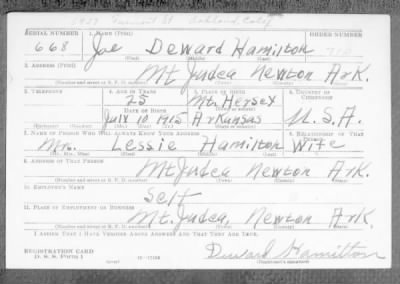 SERIAL NUMBER 1. NAME (Print) ORDER NUMBER
668 Joe Deward Hamilton
(First) (Middle) (Last)
2. ADDRESS (Print)
Mt Judea Newton Ark.
(Number and street or R. F. D. number) (Town) (County) (State)
3. TELEPHONE 4. AGE IN YEARS 5. PLACE OF BIRTH 6. COUNTRY OF CITIZENSHIP
25 Mt. Hersey
DATE OF BIRTH
July 10 1915 Arkansas U.S.A.
(Exchange) (Number) (Mo.) (Day) (Yr.) (State or country)
7. NAME OF PERSON WHO WILL ALWAYS KNOW YOUR ADDRESS 8. RELATIONSHIP OF THAT PERSON
Mrs. Lessie Hamilton Wife
(Mr., Mrs., Miss) (First) (Middle) (Last)
9. ADDRESS OF THAT PERSON
Mt Judea Newton Ark.
(Number and street or R. F. D. number) (Town) (County) (State)
10. EMPLOYER'S NAME
Self
11. PLACE OF EMPLOYMENT OR BUSINESS
Mt. Judea, Newton Ark.
(Number and street or R. F. D. number) (Town) (County) (State)
I AFFIRM THAT I HAVE VERIFIED ABOVE ANSWERS AND THAT THEY ARE TRUE.
REGISTRATION CARD
D. S. S. Form 1 Deward Hamilton
(Registrant's signature)